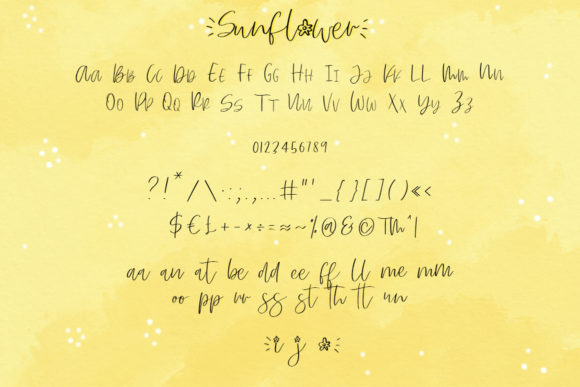 Sunflower
Aa Bb Cc Dd Ee Ff Gg Hh Ii Jj Kk LL Mm Nn
Oo Pp Qq Rr Ss Tt Uu Vv Ww Xx Yy Zz
0123456789
?!*/\·:;.,...#"'_{}[]()«
$€£+-×÷=≈~%@&©TM^|
aa an at be dd ee ff ll me mm
oo pp rr ss st th tt un
i j